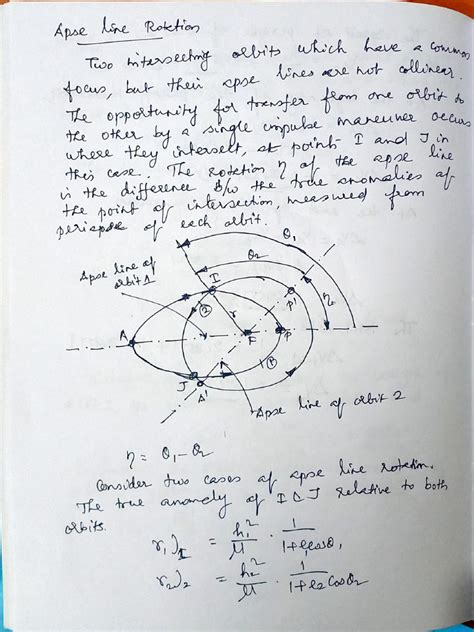 Apse line Rotation
Two intersecting orbits which have a common
focus, but their apse lines are not collinear.
The opportunity for transfer from one orbit to
the other by a single impulse maneuver occurs
where they intersect, at points I and J in
this case. The rotation η of the apse line
is the difference b/w the true anomalies of
the point of intersection, measured from
periapse of each orbit.
θ1
θ2
Apse line of
orbit 1
I
P'
η
2
r
A
F
P
J
A'
1
Apse line of orbit 2
η = θ1 - θ2
Consider two cases of apse line rotation.
The true anomaly of I & J relative to both
orbits.
r1)I = h1²/μ · 1/1+e1cosθ1
r2)I = h2²/μ · 1/1+e2Cosθ2